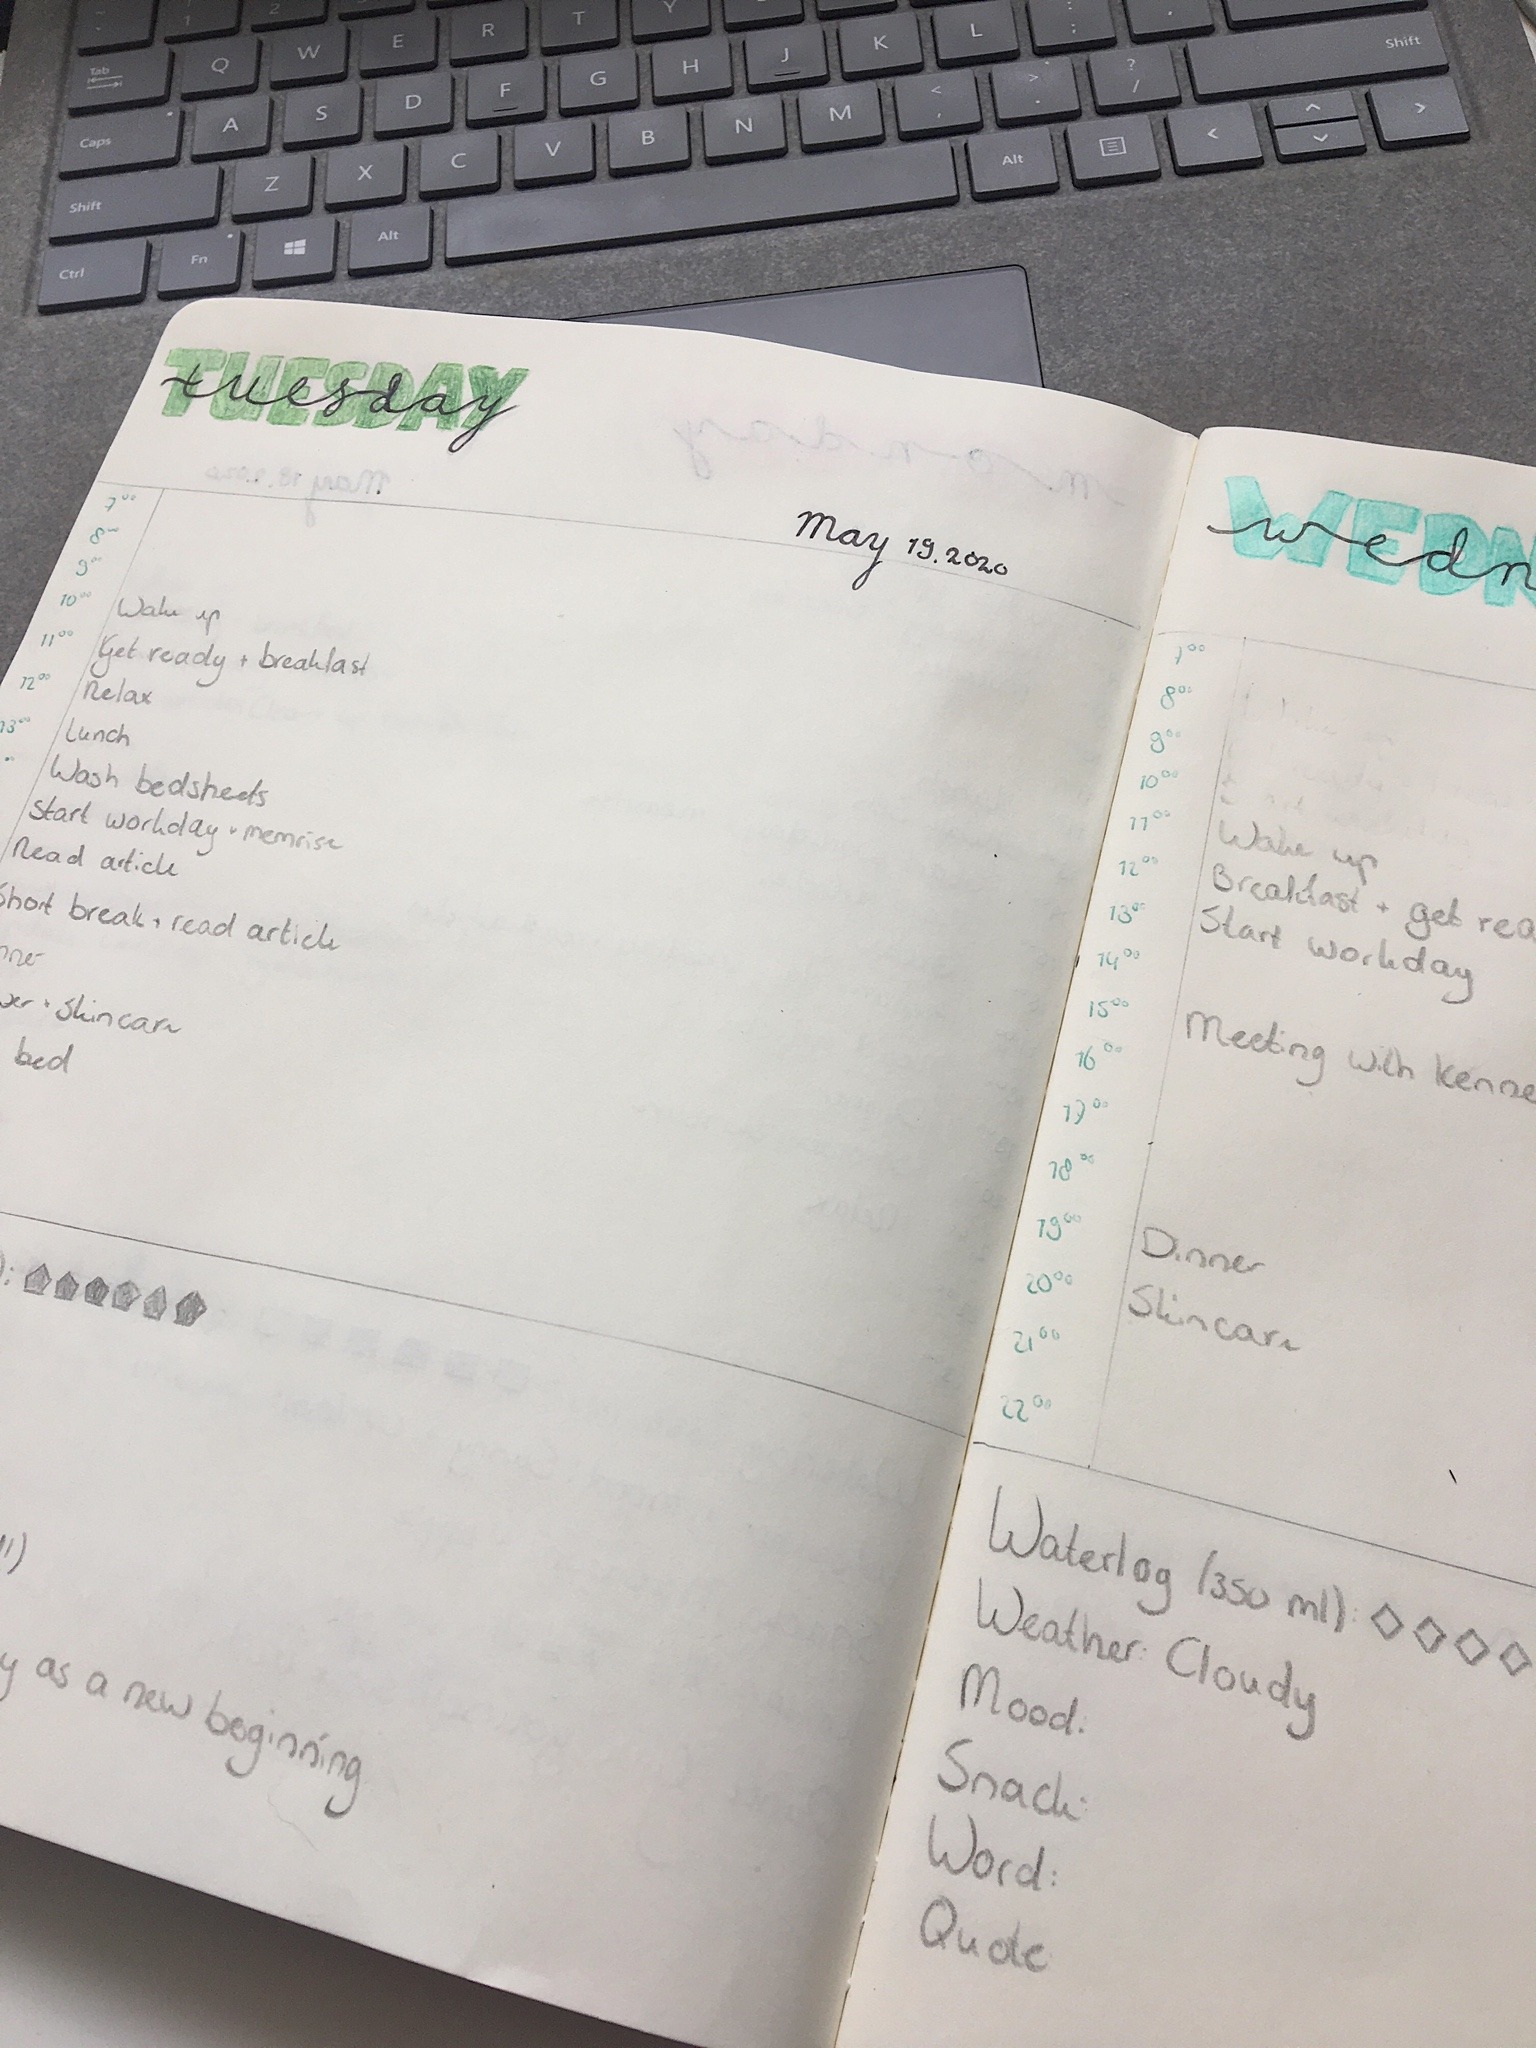 Tab
Q W E R T Y
Caps A S D F G H J K L ; Shift
Shift Z X C V B N M < , > . ? /
Ctrl Fn Alt Alt < >
TUESDAY
tuesday
May 19.2020
7⁰⁰
8⁰⁰
9⁰⁰
10⁰⁰ Wake up
11⁰⁰ Get ready + breakfast
12⁰⁰ Relax
13⁰⁰ Lunch
Wash bedsheets
Start workday + memrise
Read article
Short break + read article
nner
wer + Skincare
bed
):
y as a new beginning
WEDN
wedn
7⁰⁰
8⁰⁰
9⁰⁰
10⁰⁰
11⁰⁰ Wake up
12⁰⁰ Breakfast + get rea
13⁰⁰ Start workday
14⁰⁰
15⁰⁰ Meeting with Kenne
16⁰⁰
17⁰⁰
18⁰⁰
19⁰⁰ Dinner
20⁰⁰ Skincare
21⁰⁰
22⁰⁰
Waterlog (350 ml):
Weather: Cloudy
Mood:
Snack:
Word:
Quote